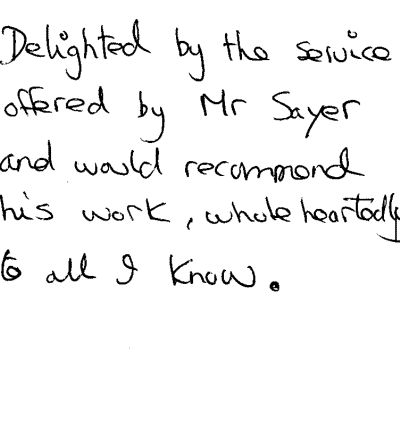 Delighted by the service
offered by Mr Sayer
and would recommend
his work, whole heartedly
to all I know.